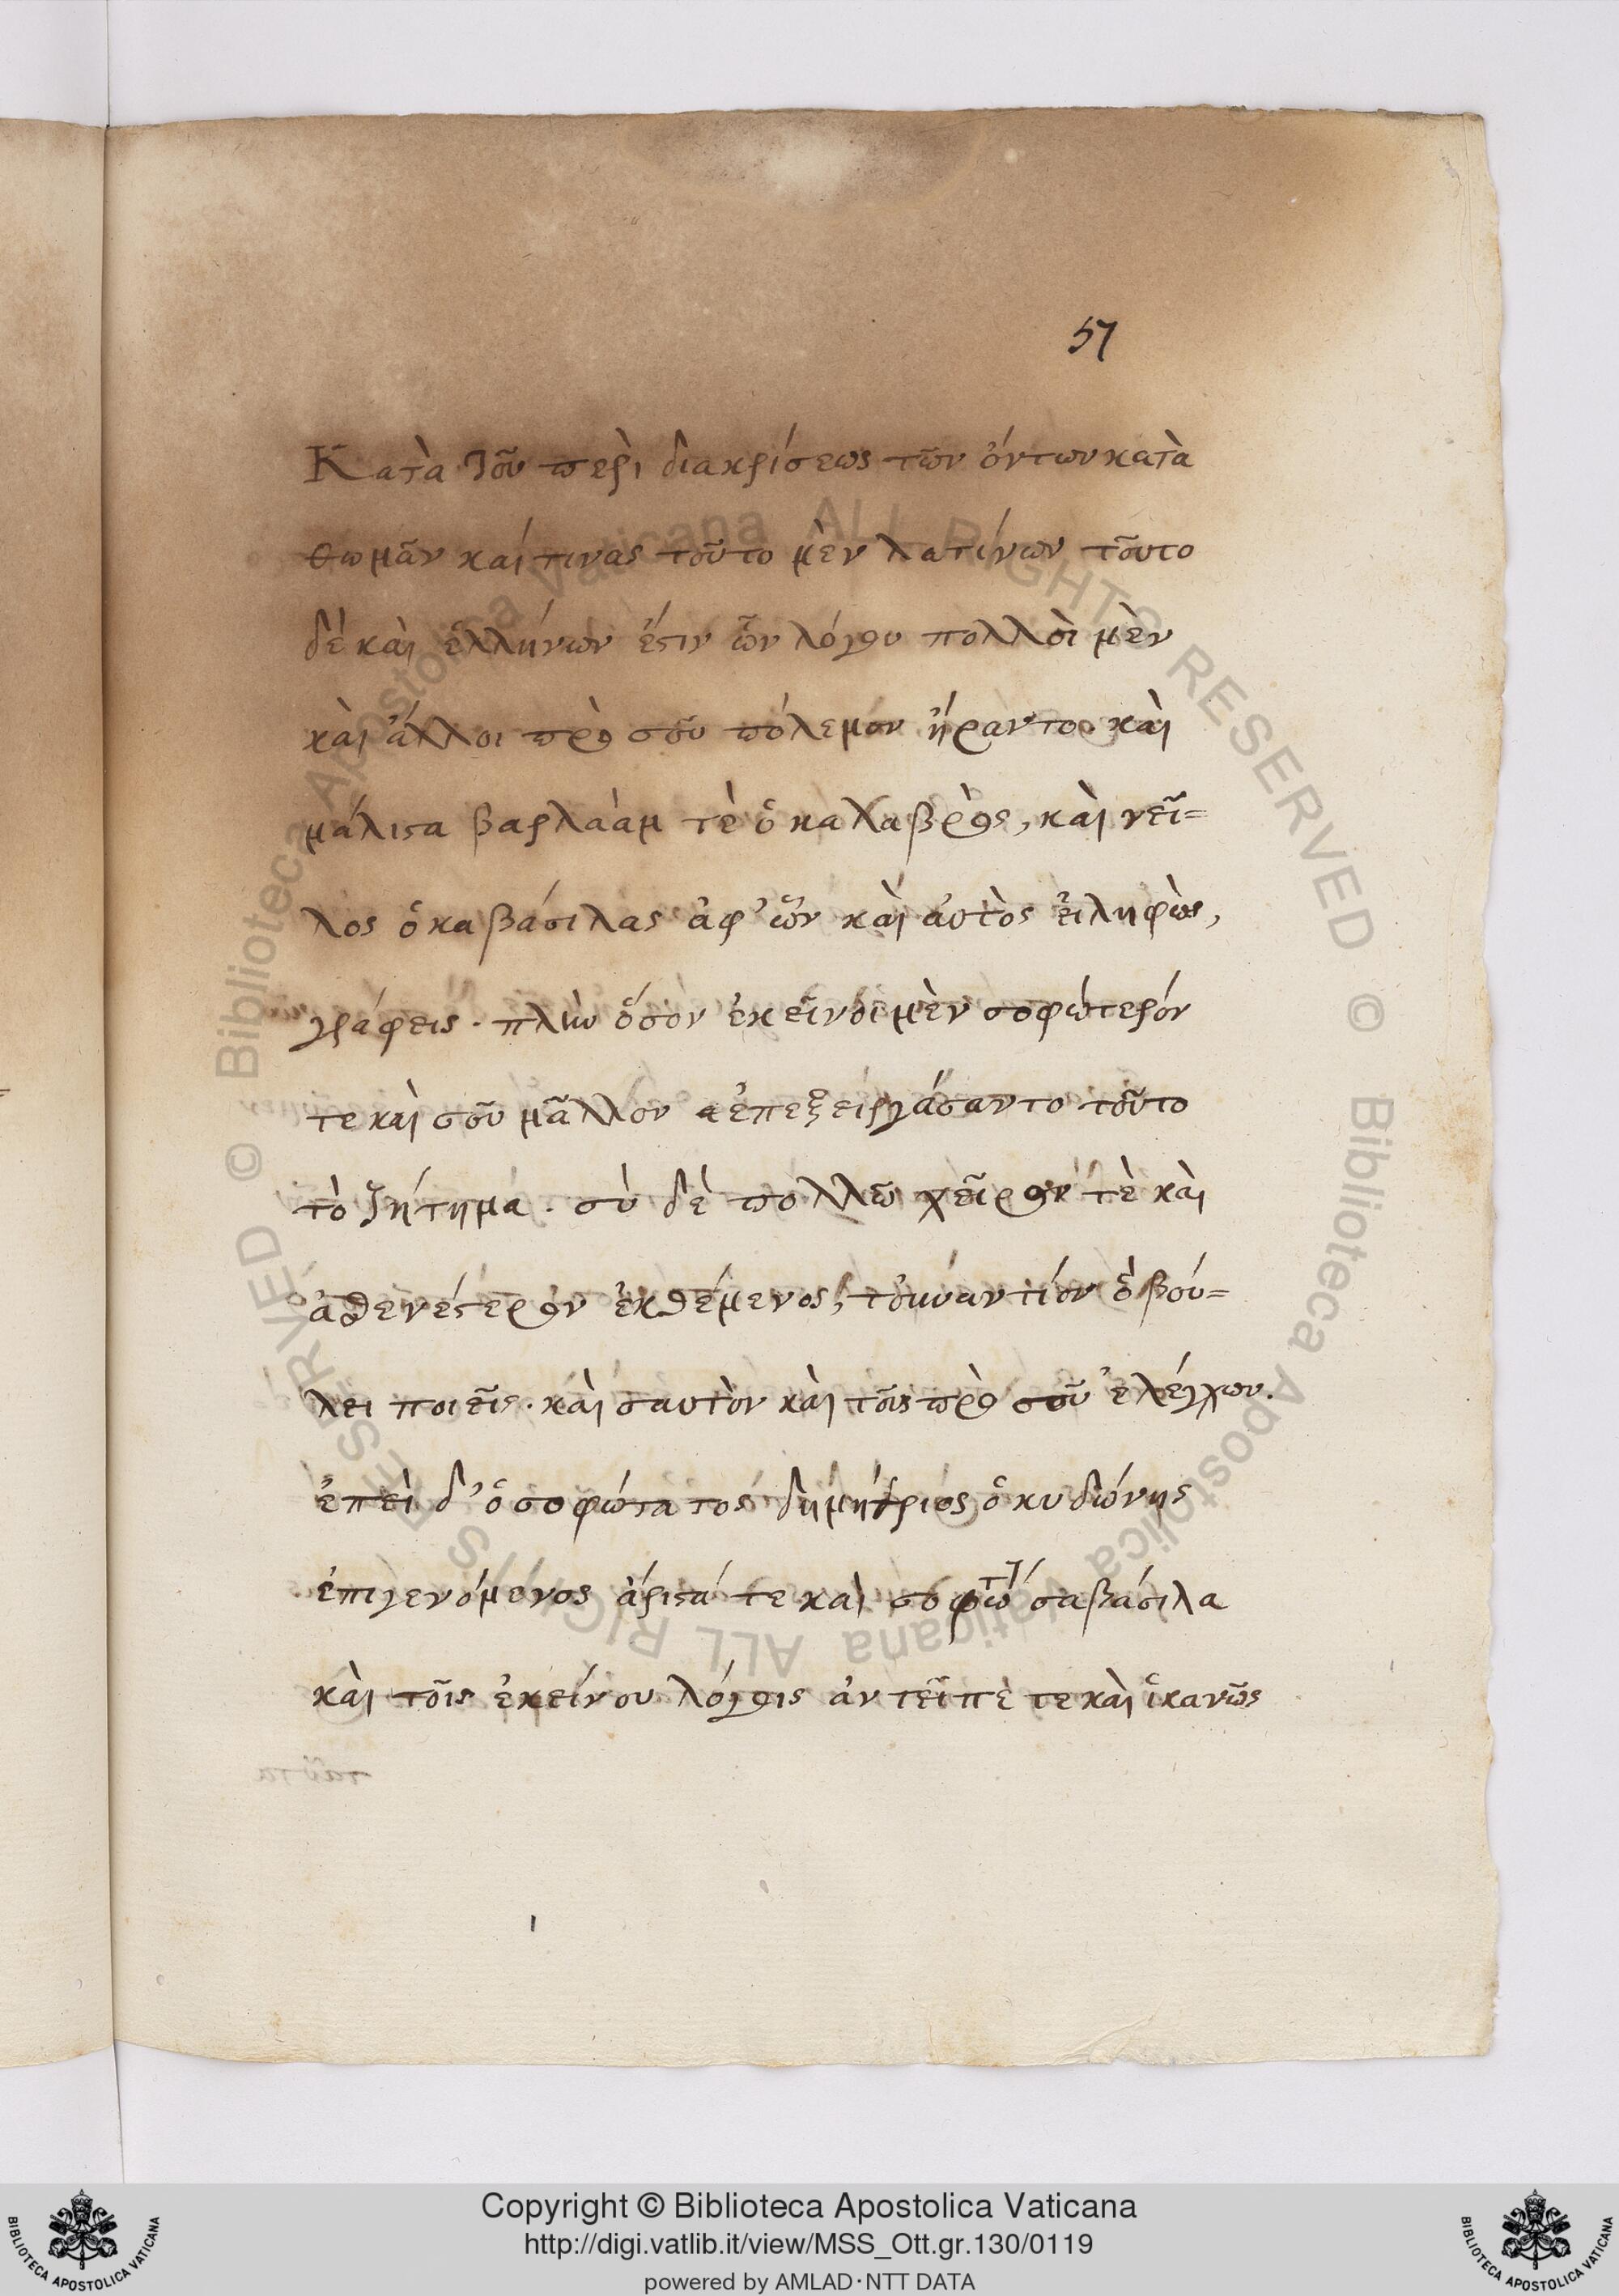 57
Κατὰ τοῦ περὶ διακρίσεως τῶν ὄντων κατὰ
θωμᾶν καί τινας τοῦτο μὲν λατίνων τοῦτο
δὲ καὶ ἑλλήνων ἐστιν ὧν λόγου πολλοὶ μὲν
καὶ ἄλλοι πρὸ σοῦ πόλεμον ἤραντο καὶ
μάλιστα βαρλαάμ τὲ ὁ καλαβρὸς, καὶ νεῖ=
λος ὁ καβάσιλας ἀφ' ὧν καὶ ἀυτὸς ἐιληφὼς,
γράφεις. πλὴν ὅσον ἐκεῖνοι μὲν σοφώτερόν
τε καὶ σοῦ μᾶλλον ἐπεξειργάσαντο τοῦτο
τὸ ζήτημα. σὺ δὲ πολλῶ χεῖρον τὲ καὶ
ἀσθενέστερον ἐκθέμενος, τὀυναντίον ὃ βού=
λει ποιεῖς. καὶ σαυτὸν καὶ τοῖς πρὸ σοῦ ἐλέγχων.
ἐπεὶ δ' ὁ σοφώτατος δημήτριος ὁ κυδώνης
ἐπιγενόμενος ἄριστά τε καὶ σοφώτ σαβάσιλα
καὶ τοῖς ἐκείνου λόγοις ἀντεῖπέ τε καὶ ἱκανῶς
ταῦτα
© Biblioteca Apostolica Vaticana ALL RIGHTS RESERVED
© Biblioteca Apostolica Vaticana ALL RIGHTS RESERVED
Copyright © Biblioteca Apostolica Vaticana
http://digi.vatlib.it/view/MSS_Ott.gr.130/0119
powered by AMLAD·NTT DATA
BIBLIOTECA APOSTOLICA VATICANA
BIBLIOTECA APOSTOLICA VATICANA